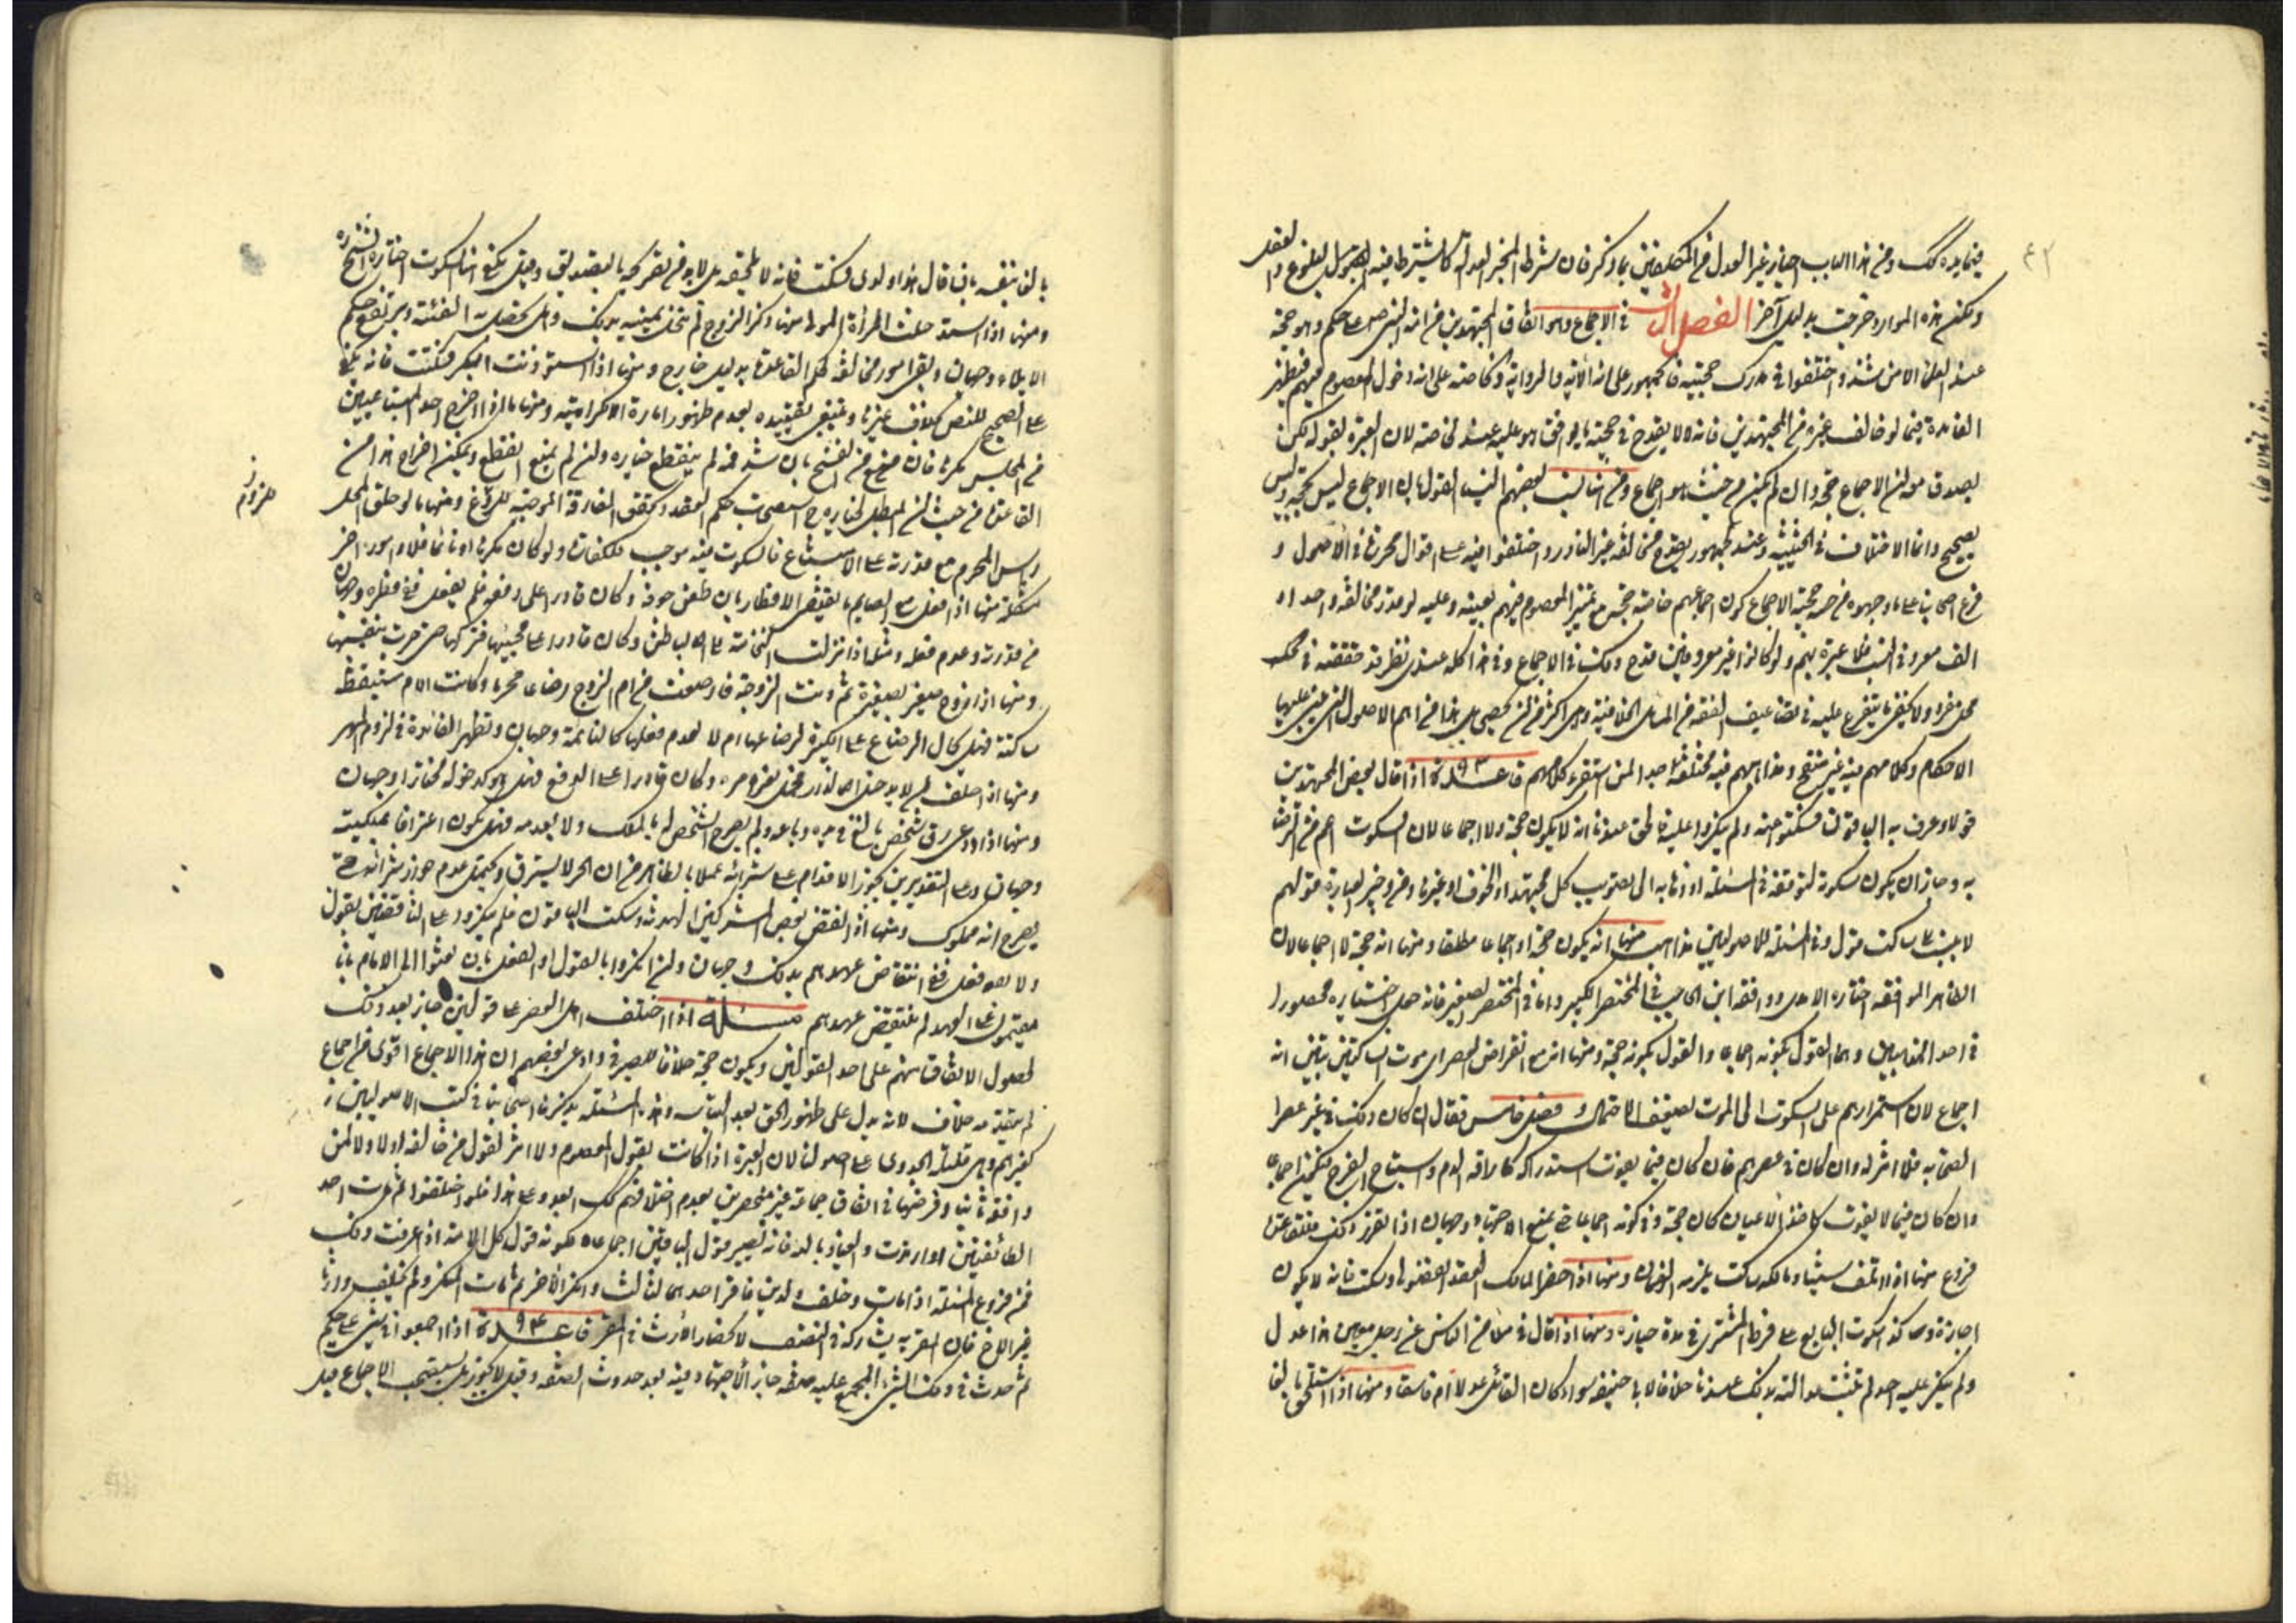 ٤٢
فيما يده كك ومن هذا الباب اخبار غير العدل من المكلفين بما ذكر فان شرط المخبر العدالة كما يشترط فيه البلوغ والعقل
ويمكن هذه الموارد خرجت بدليل آخر الفصل الثالث في الاجماع وهو اتفاق المجتهدين من امة النبي ص على حكم وهو حجة
عند العلماء الا من شذ واختلفوا في مدرك حجيته فالجمهور على انه الآية والرواية والخاصة على انه دخول المعصوم فيهم فتظهر
الفائدة فيما لو خالف غيره من المجتهدين فانه لا يقدح في حجيته ما يوافق ما هو عليه عند الخاصة لان العبرة بقوله لكن
يصدق معه ان الاجماع حجة وان لم يكن من حيث هو اجماع ومن هنا نسب بعضهم الينا القول بان الاجماع ليس بحجة وليس
بصحيح وانما الاختلاف في الحيثية وعند الجمهور يقدح مخالفة غير النادر واختلفوا فيه على اقوال محررة في الاصول و
فرع اصحابنا على ما وجهوه من حجية الاجماع كون اجماعهم خاصة حجة مع تميز المعصوم فيهم بعينه وعليه لو قدر مخالفة واحد او
الف معروفي النسب فلا عبرة بهم ولو كانوا غير معروفين قدح ذلك في الاجماع وفي هذا كله عندي نظر قد حققته في محل
محل مفرد ولا يخفى ما يتفرع عليه في تضاعيف الفقه من المسائل الخلافية وهي اكثر من ان يحصى بل هذا من اهم الاصول التي تبتنى عليها
الاحكام وكلامهم فيه غير منقح ومذاهبهم فيه مختلفة جدا لمن استقرء كلامهم قاعدة ٩٣ اذا قال بعض المجتهدين
قولا وعرف به الباقون فسكتوا عنه ولم ينكروا عليه فالحق عندنا انه لا يكون حجة ولا اجماعا لان السكوت اعم من الرضا
به وجاز ان يكون سكوته لتوقفه في المسئلة او ذهابه الى تصويب كل مجتهد او للخوف او غيره ومن وجيز العبارة قولهم
لا ينسب الى ساكت قول وفي المسئلة للاصوليين مذاهب منها انه يكون حجة واجماعا مطلقا ومنها انه حجة لا اجماعا لان
الظاهر الموافقة اختاره الآمدي ووافقه ابن الحاجب في المختصر الكبير واما في المختصر الصغير فانه جعل اختياره محصورا
في احد المذهبين وهما القول بكونه اجماعا والقول بكونه حجة ومنها انه مع انقراض العصر اي موت الساكتين يتبين انه
اجماع لان استمرارهم على السكوت الى الموت يضعف الاحتمال وفصل خامس فقال ان كان ذلك في غير عصر
الصحابة فلا اثر له وان كان في عصرهم فان كان فيما يفوت استدراكه كاراقة الدم واستباحة الفرج فيكون اجماعا
وان كان فيما لا يفوت كاخذ الاعيان كان حجة وفي كونه اجماعا حتى يمنع الاجتهاد وجهان اذا تقرر ذلك فللقاعدة
فروع منها اذا اتلف شيئا ومالكه ساكت يلزمه الضمان ومنها اذا حضر المالك العقد الفضولي وسكت فانه لا يكون
اجازة وما كذا سكوت البايع على فرط المشتري في مدة خياره ومنها اذا قال في ملأ من الناس عن رجل معين هذا عدل
ولم ينكر عليه احد لم تثبت عدالته بذلك عندنا خلافا لابي حنيفة سواء كان القائل عدلا ام فاسقا ومنها اذا استلحق بالغا
بالغا بنفسه بان قال هذا ولدي فسكت فانه لا يلحقه بل لا بد من تصريحه بالتصديق وقيل يكفي هنا السكوت اختاره الشهيد
ومنها اذا استدخلت المرأة المولى منها ذكر الزوج لم تنحل يمينه بذلك وهل تحصل به الفئة ويرتفع حكم
الايلاء وجهان وبقي امور مخالفة لحكم القاعدة بدليل خارج ومنها اذا استؤذنت البكر فسكتت فانه يكفي
على الصحيح للنص بخلاف غيرها وينبغي تقييده بعدم ظهور امارة الكراهية ومنها ما لو اخرج احد المتبايعين
من المجلس مكرها فان منع من الفسخ بان سد فمه لم ينقطع خياره وان لم يمنع انقطع ويمكن اخراج هذا من
القاعدة من حيث ان المبطل لخياره ح استصحاب حكم العقد وتحقق المفارقة الموجبة للزوم ومنها ما لو حلق المحل
راس المحرم مع قدرته على الامتناع فالسكوت فيه موجب للكفارة ولو كان مكرها او نائما فلا وامور اخر
مشكلة منها اذا فعل مع الصايم ما يقتضي الافطار بان طعن جوفه وكان قادرا على دفعه فلم يفعل ففي فطره وجهان
من قدرته وعدم فعله ومثله اذا نزلت النخامة الى الباطن وكان قادرا على مجها فتركها حتى جرت بنفسها
ومنها اذا زوج صغير بصغيرة ثم دبت الزوجة فارتضعت من ام الزوج رضاعا محرما وكانت الام مستيقظة
ساكتة فهل يحال الرضاع على الكبيرة لرضاعها ام لا لعدم فعلها كالنائمة وجهان وتظهر الفائدة في لزوم المهر
ومنها اذا حلف لا يدخل الدار فحمل بغير امره وكان قادرا على الدفع فهل هو كدخوله مختارا وجهان
ومنها اذا ادعى رق شخص بالغ في يده وباعه ولم يصرح الشخص له بالملك ولا بعدمه فهل يكون اعترافا بملكيته
وجهان وعلى التقديرين يجوز الاقدام على شرائه عملا بالظاهر من ان الحر لا يسترق ويحتمل عدم جواز شرائه حتى
يصرح انه مملوك ومنها اذا نقض بعض المشركين الهدنة وسكت الباقون فلم ينكروا على الناقضين بقول
ولا بفعل ففي انتقاض عهدهم بذلك وجهان وان انكروا بالقول او الفعل بان بعثوا الى الامام بانا
مقيمون على العهد لم ينتقض عهدهم مسئلة اذا اختلف اهل العصر على قولين جاز بعد ذلك
حصول الاتفاق منهم على احد القولين ويكون حجة خلافا للصيرفي وادعى بعضهم ان هذا الاجماع اقوى من اجماع
لم يتقدمه خلاف لانه يدل على ظهور الحق بعد التباسه وهذه المسئلة يذكرها اصحابنا في كتب الاصوليين
كغيرهم وهي قليلة الجدوى على اصولنا لان العبرة اذا كانت بقول المعصوم ولا اثر لقول من خالفه اولا ولا لمن
وافقه ثانيا وفرضها في اتفاق جماعة غير منحصرين بعدم اختلافهم كك البعد وعلى هذا فلو اختلفوا ثم ماتت احد
الطائفتين او ارتدت والعياذ بالله فانه يصير قول الباقين اجماعا لكونه قول كل الامة اذا عرفت ذلك
فمن فروع المسئلة اذا مات وخلف ولدين فاقر احدهما بثالث وانكر الآخر ثم مات المنكر ولم يخلف وارثا
غير الاخ فان المقر به يشاركه في النصف لانحصار الارث في المقر قاعدة ٩٤ اذا اجمعوا في شيء على حكم
ثم حدث في ذلك الشيء المجمع عليه صفة جاز الاجتهاد فيه بعد حدوث الصفة وقيل لا يجوز بل يستصحب الاجماع قبل